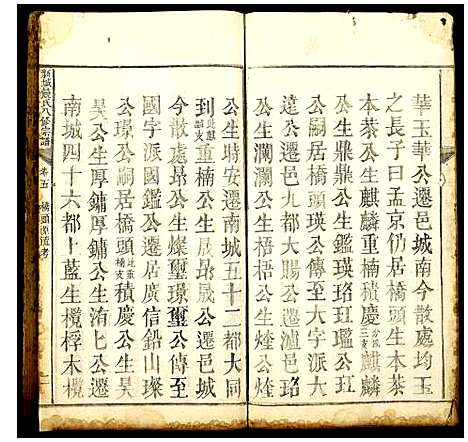 華玉華公遷邑城南今散處均玉
之長子曰孟京仍居橋頭生本菾
本菾公生麒麟重楠積慶分爲三支麒麟
公生鼎鼎公生鑑瑛珞玒瓛公玒
公嗣居橋頭瑛公傳至大字派大
遠公遷六都大賜公遷瀘溪珞
公生瀾瀾公生梧梧公生煃煃
公生時安遷南城五十二都大同
到此麒麟支重楠公生昴晟公遷邑城
今散處昴公生燦璽璟璽公傳至
國字派國鑑公遷居廣信鉛山璨
公璟公嗣居橋頭此重楠支積慶公生昊
昊公生厚鏞厚鏞公生洧七公遷
南城四十六都上藍生欖桴木欖
新城
氏八修宗譜
卷五
橋頭源流考